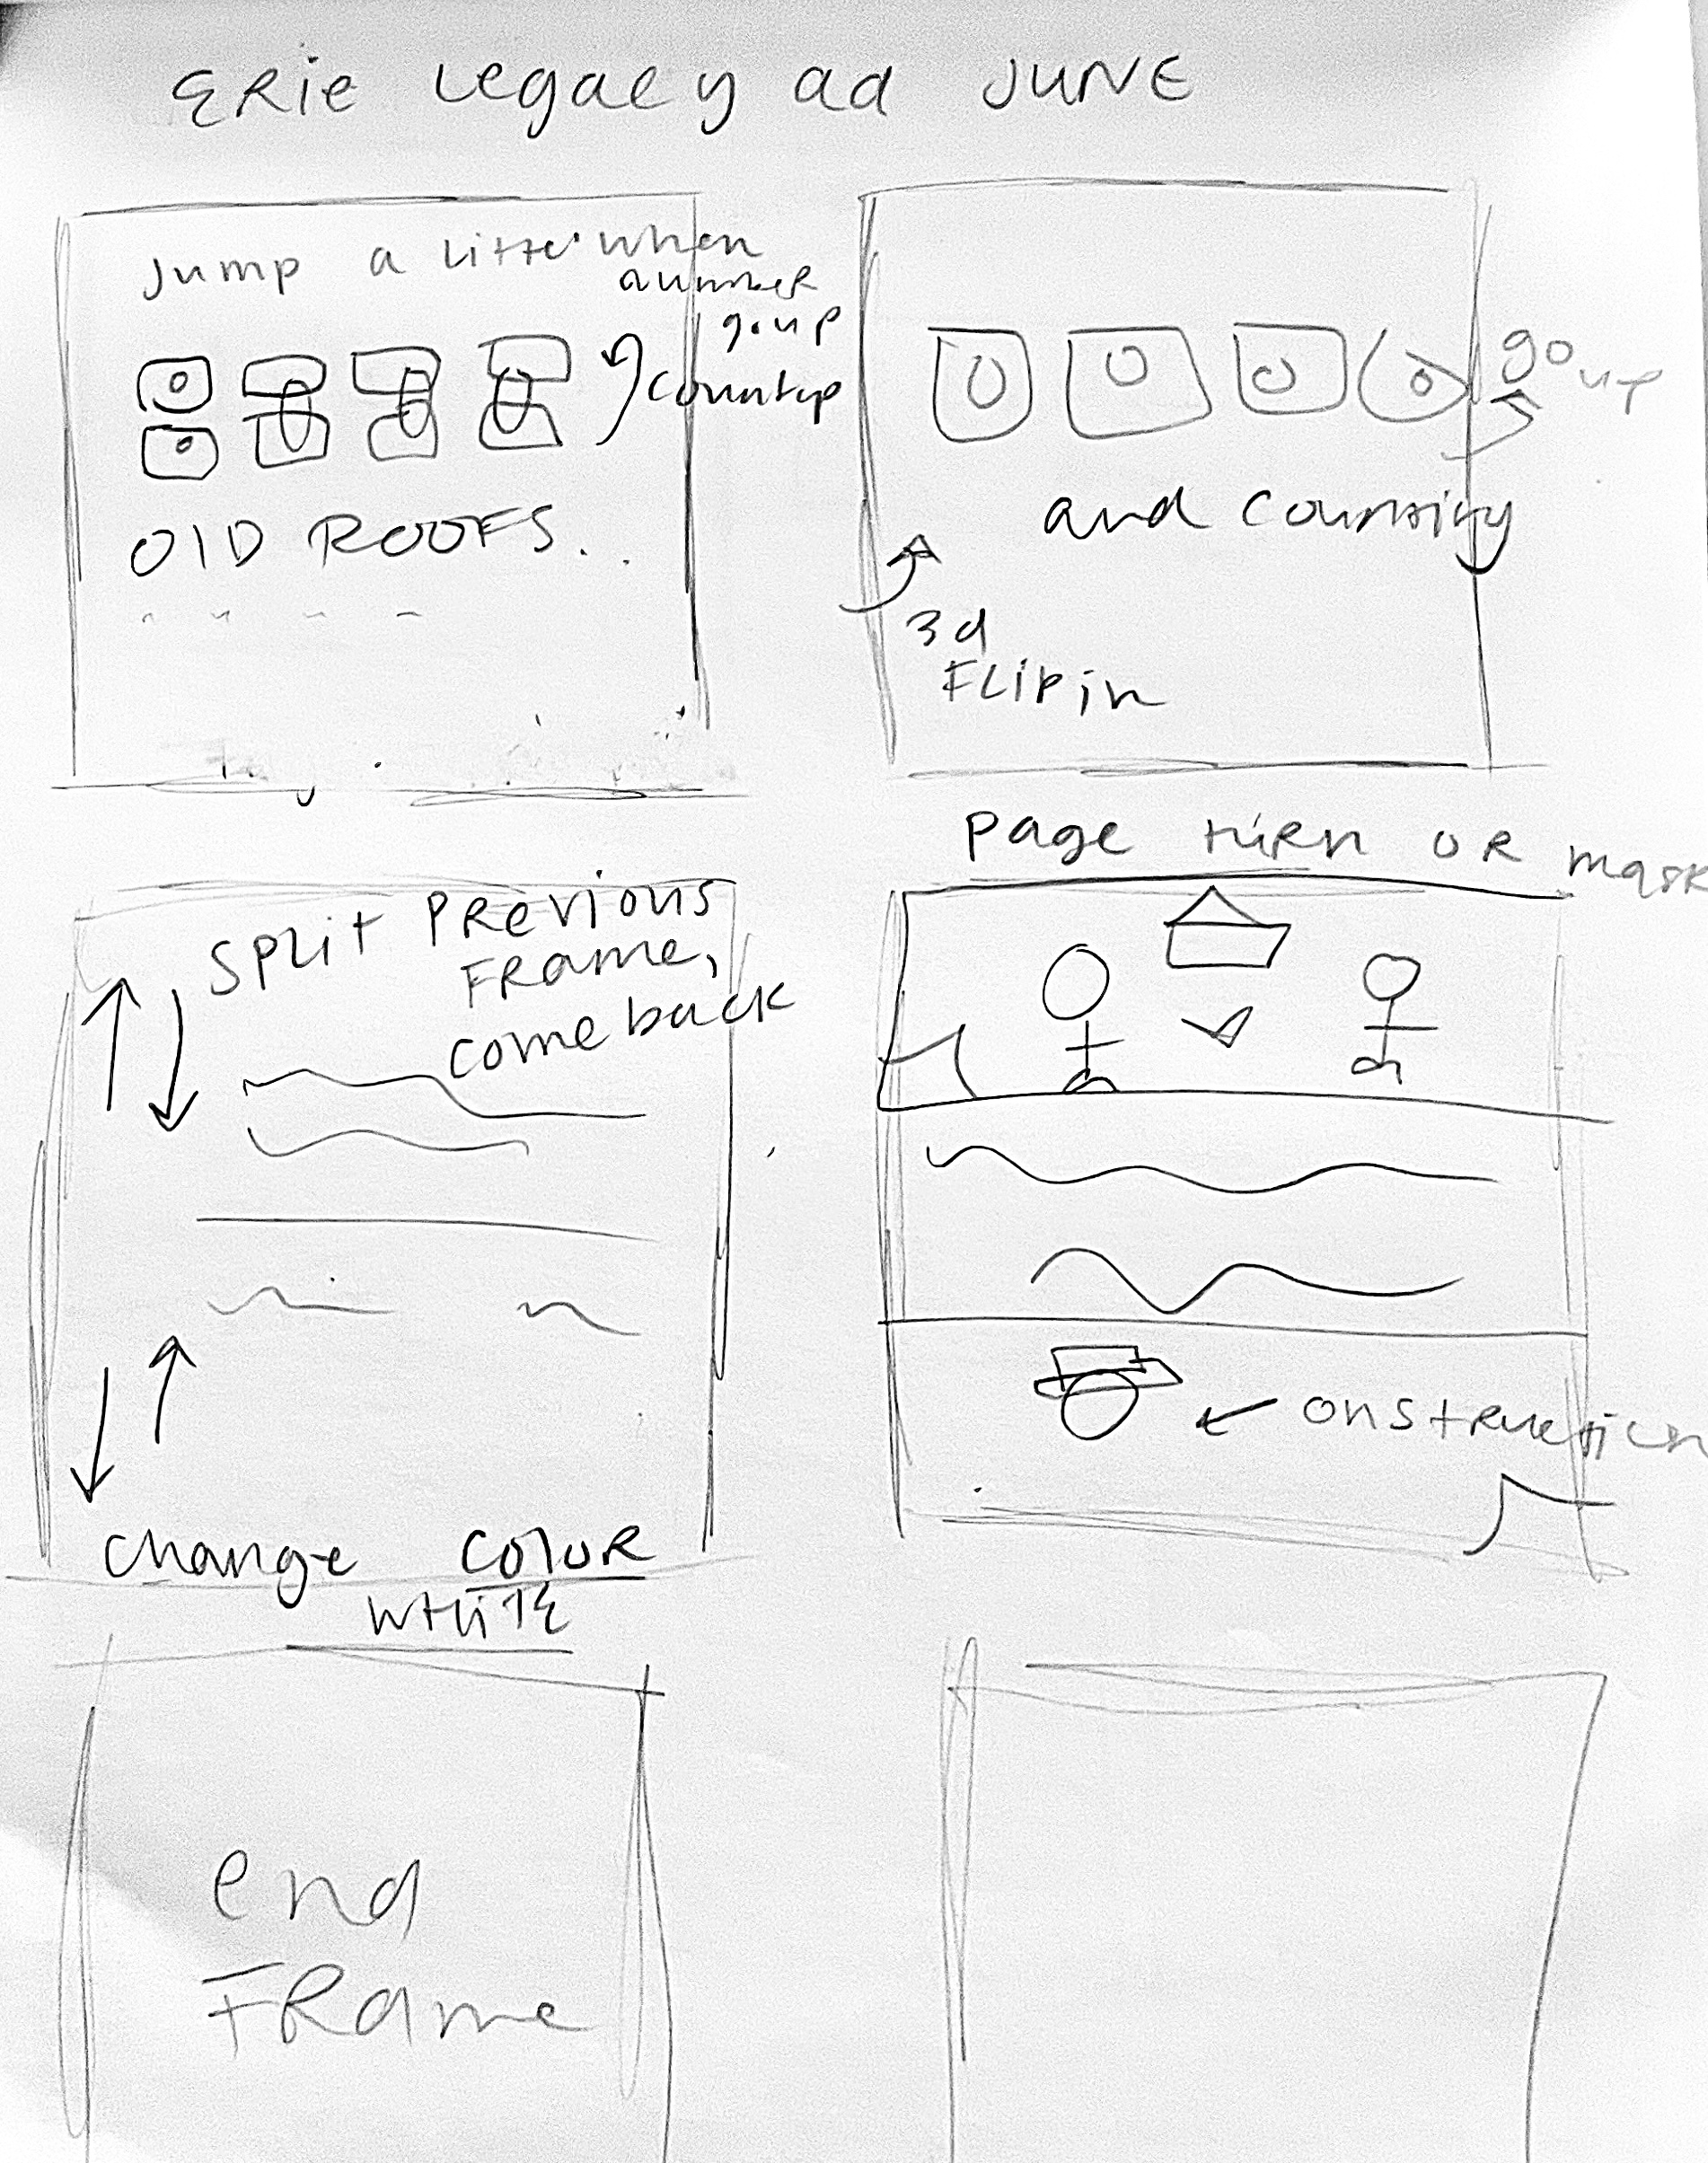 ERie Legacy ad JUNE
Jump a Little when
a number
go up
count up
OlD ROOFS..
go up
and counting
3d
FLIP in
Page turn OR mask
Split PRevious
FRame,
come back
onstruction
change COlOR
WHiTE
end
FRame